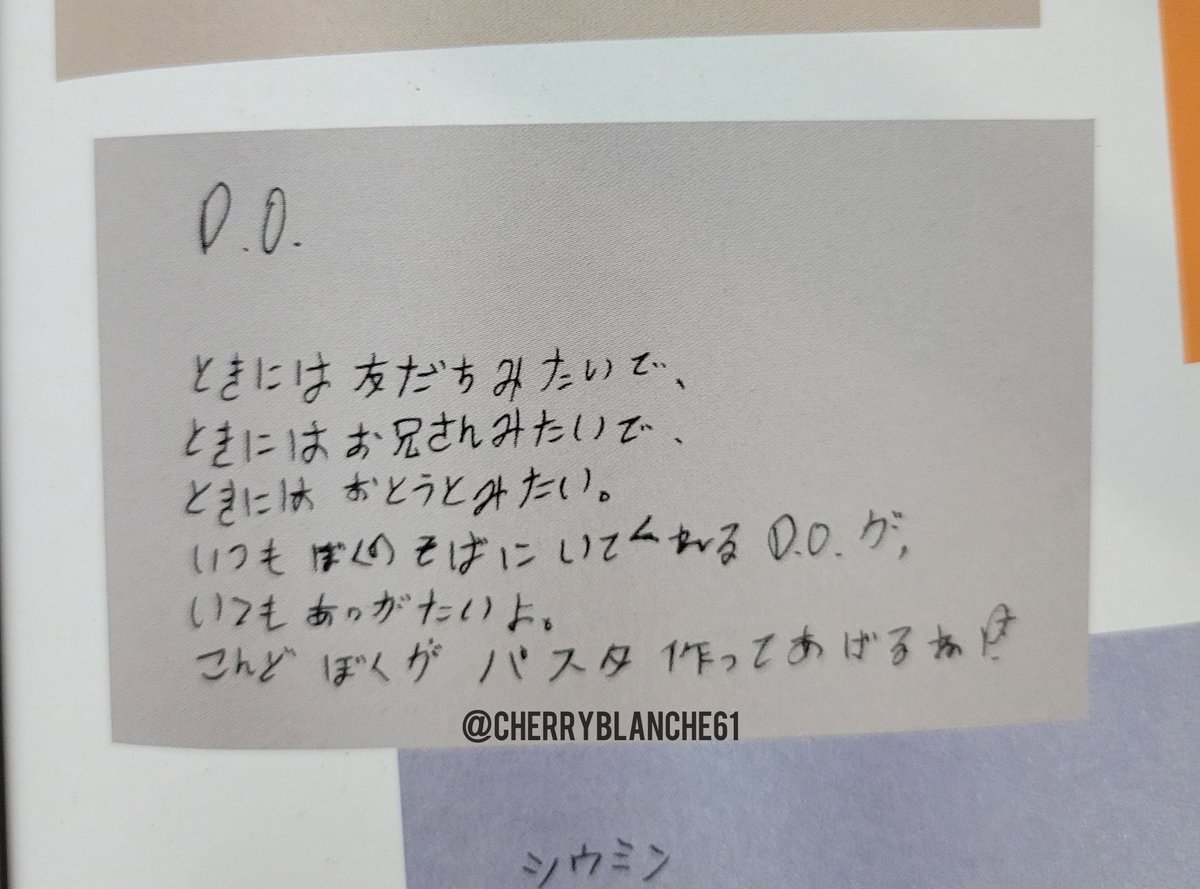 D.O.
ときには 友だちみたいで、
ときにはお兄さんみたいで、
ときには おとうとみたい。
いつも ぼくのそばにいてくれる D.O.が、
いつも ありがたいよ。
こんど ぼくが パスタ 作ってあばるね!
@CHERRYBLANCHE61
シウミン